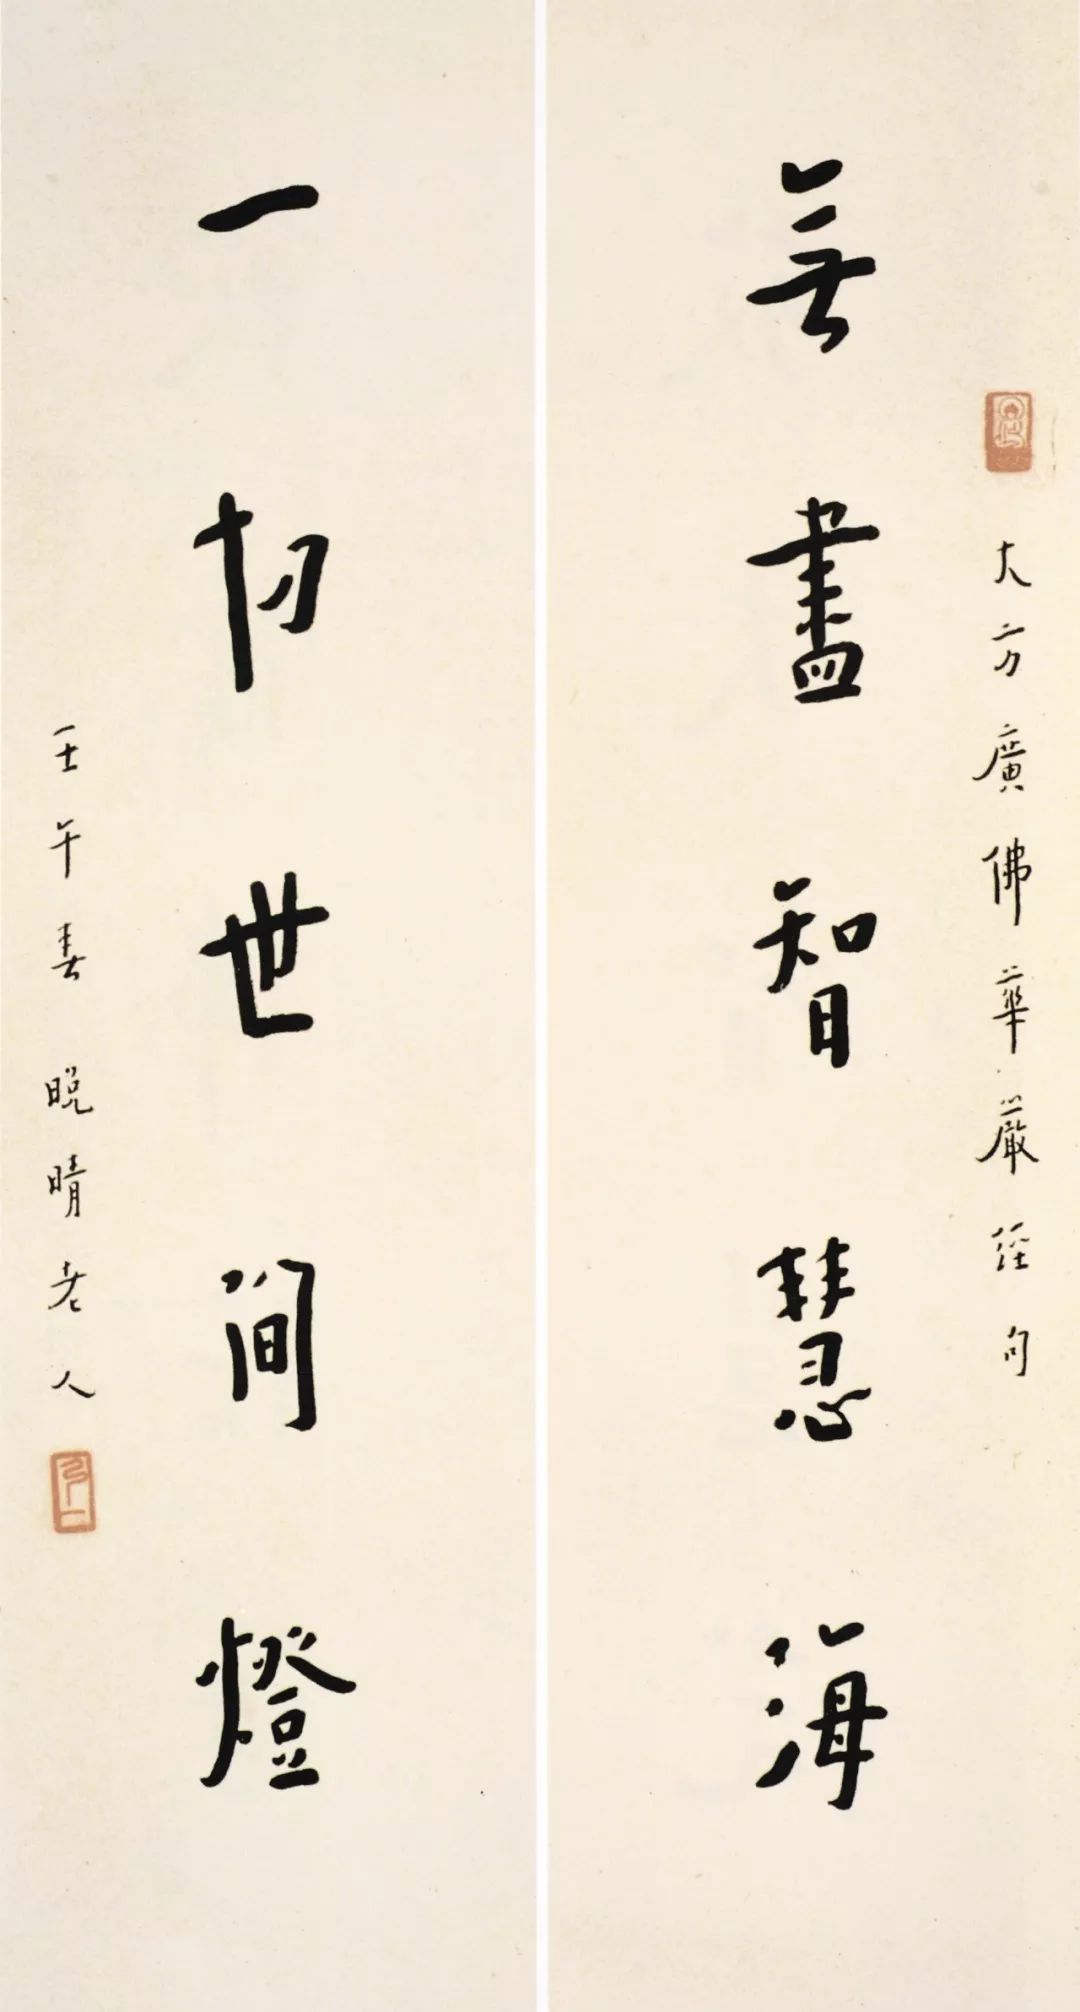 大方廣佛華嚴經句
無盡智慧海
一切世間燈
壬午春晚晴老人
弘一